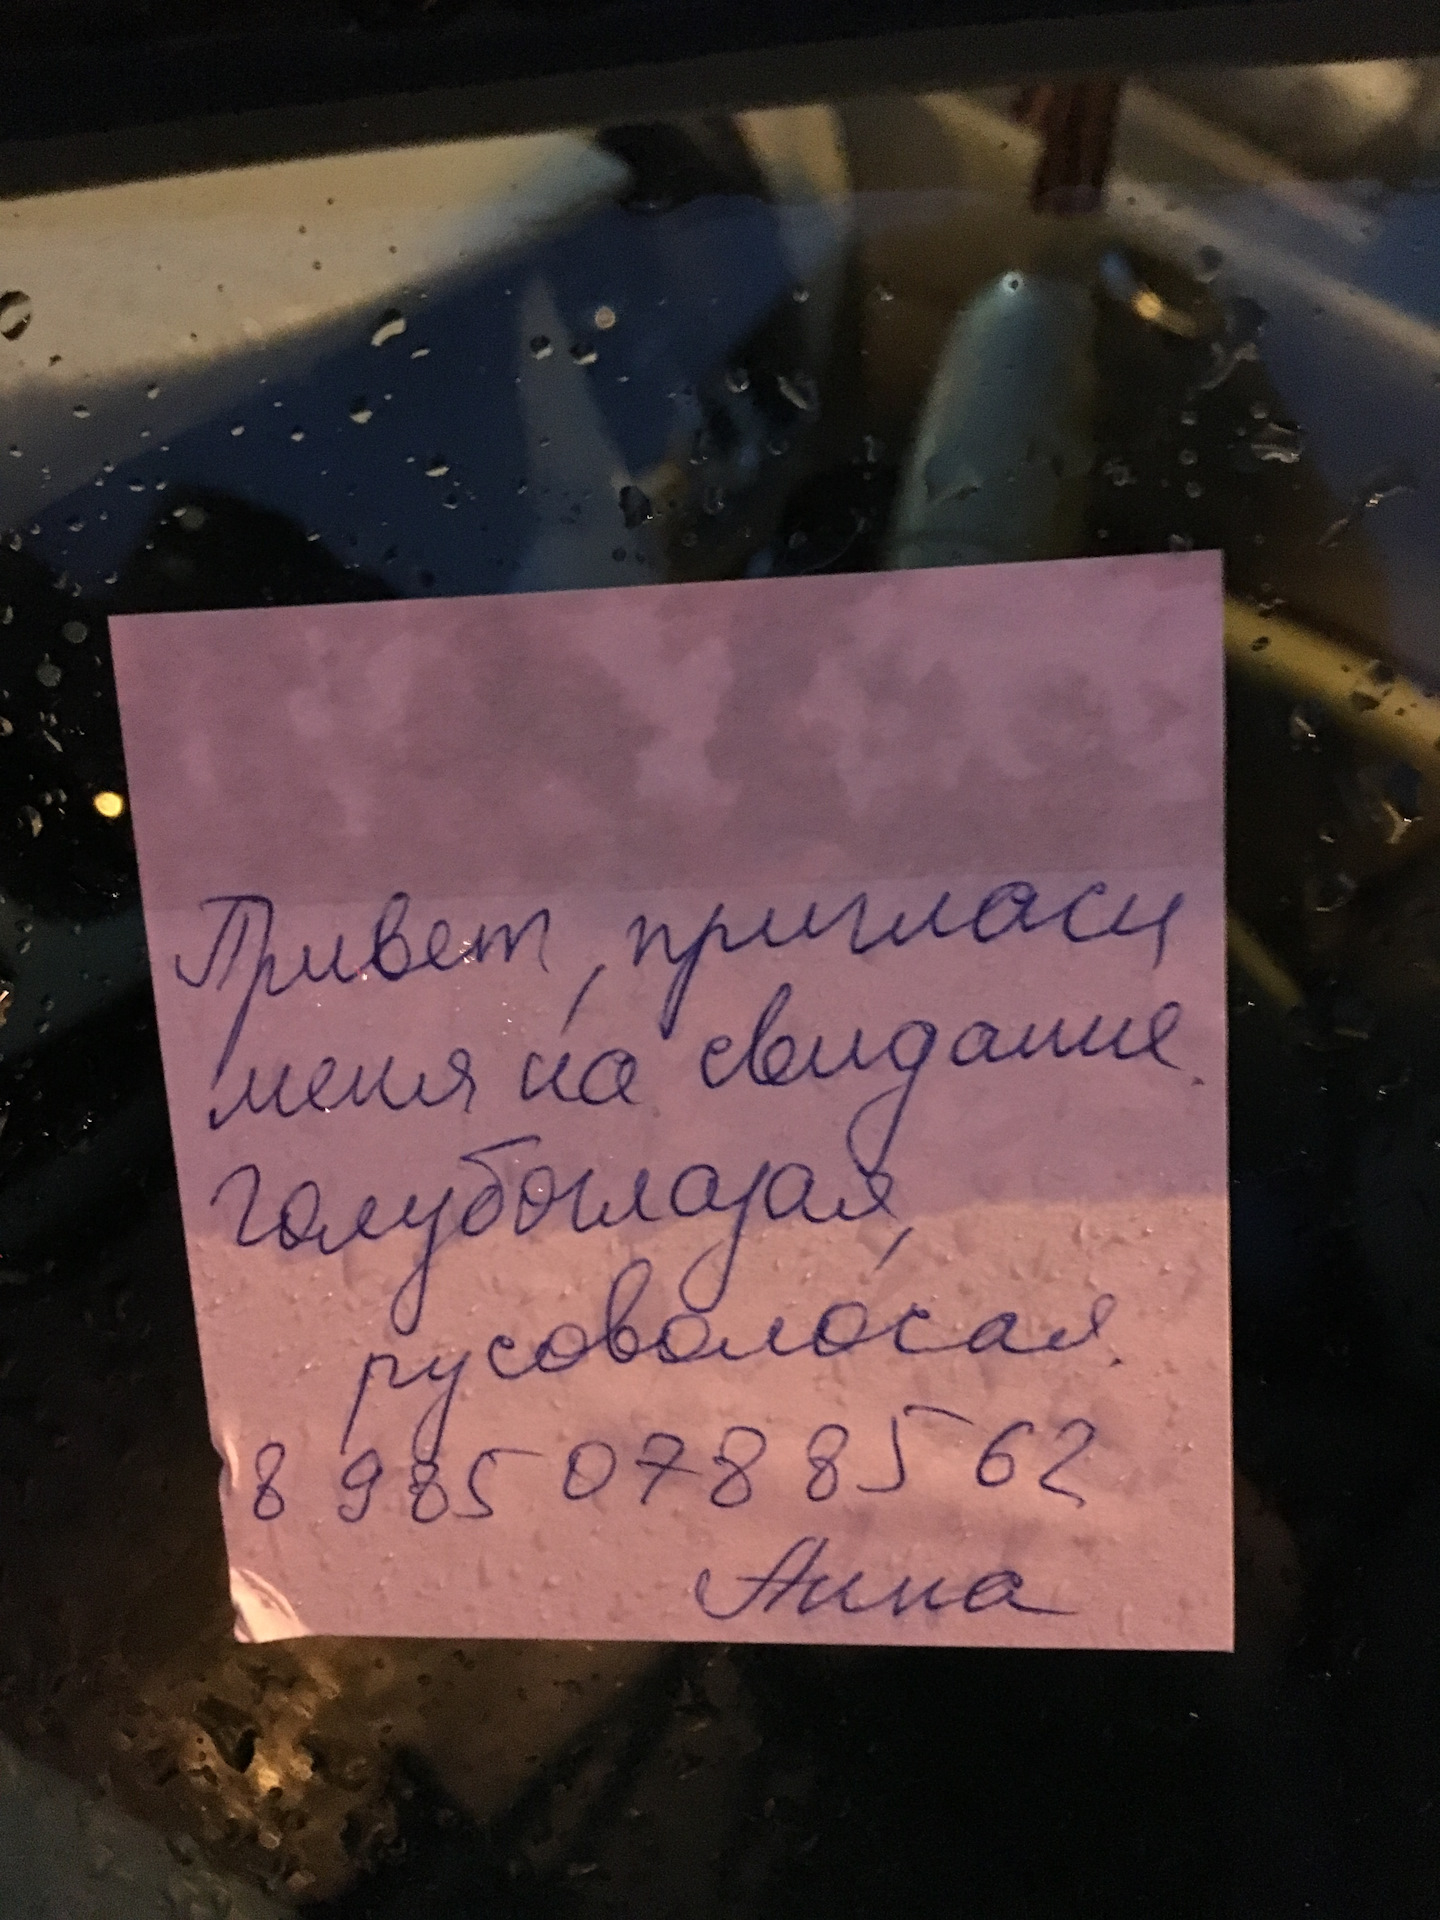 Привет, пригласи
меня на свидание.
Голубоглазая,
русоволосая.
8 985 078 85 62
Анна